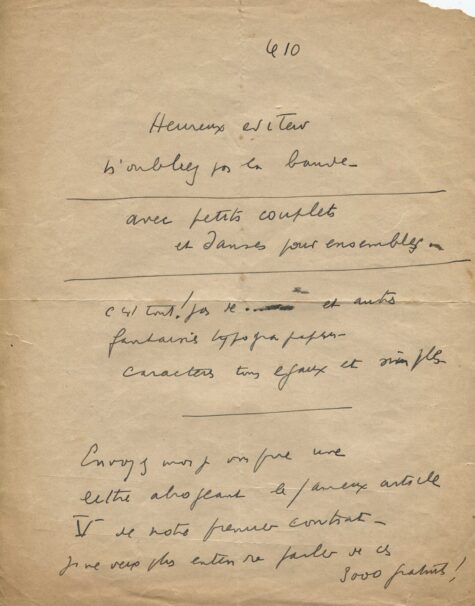 le 10
Heureux editeur
N'oubliez pas la bande -
avec petits couplets
et danses pour ensembles -
C'est tout! pas de ..... et autres
fantaisies typographiques -
caracteres tous egaux et simples
Envoyez moi je vous prie une
lettre abrogeant le fameux article
V de notre premier contrat -
je ne veux plus entendre parler de ces
3000 gratuits!